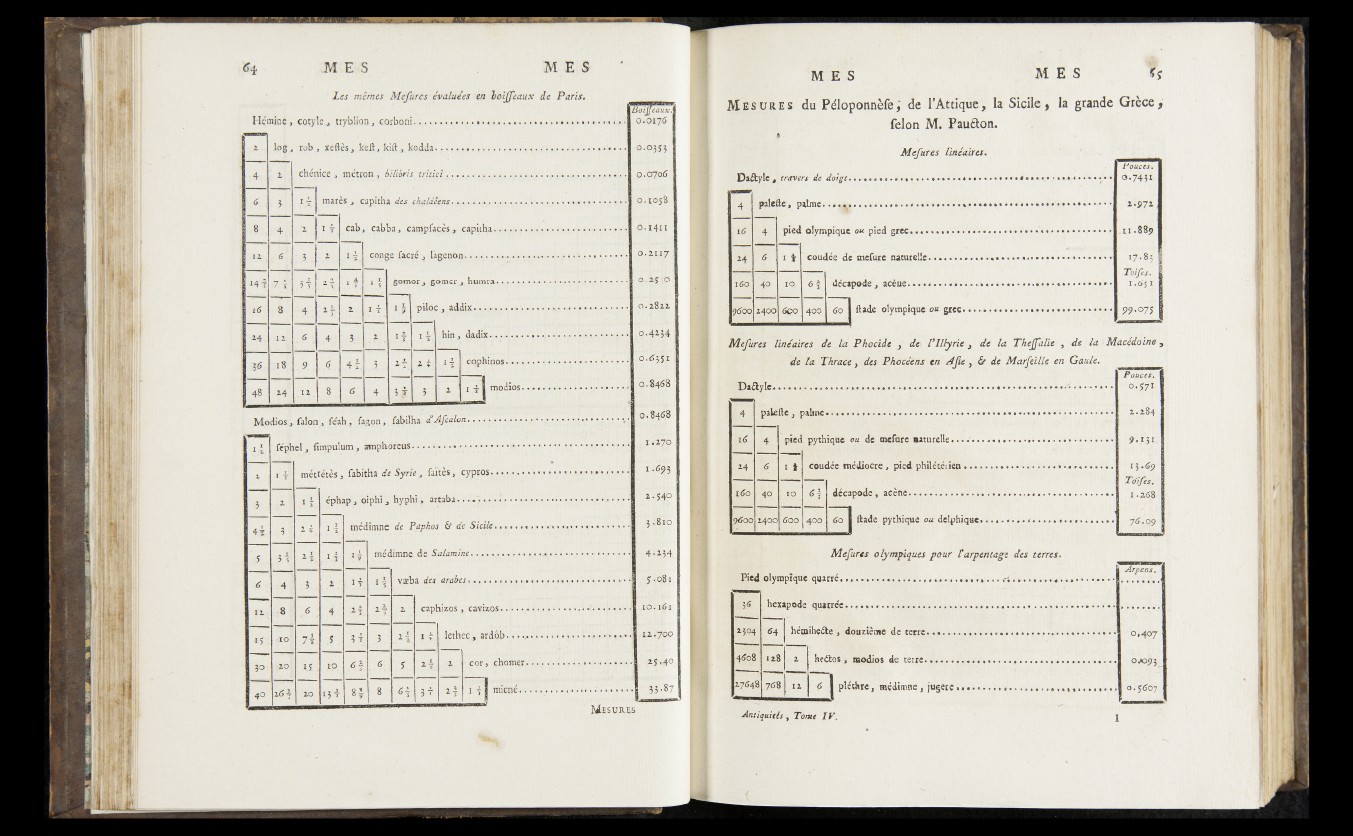 64 MES MES
Les mêmes Mesures évaluées en boisseaux de Paris.
Boisseaux.
Hémine, cotyle, tryblion, corboni. 0.0176
2 log, rob, xestès, kest, kist, kodda. 0.0353
4 2 chénice, métron, bilibris tritici. 0.0706
6 3 1 1/2 marès, capitha des chaldéens. 0.1058
8 4 2 1 1/3 cab, cabba, campsacès, capitha. 0.1411
12 6 3 2 1 1/2 conge sacré, lagenon. 0.2117
gomor, gomer, humra.
16 8 4 piloc, addix. 0.2822
24 12 6 4 3 2 hin, dadix. 0.4234
36 18 9 6 4 1/2 3 cophinos. 0.6351
48 24 12 8 6 4 3 2 modios. 0.8468
Modios, salon, séah, sagon, sabilha d'Ascalon. 0.8468
1 1/2 séphel, simpulum, amphoreus. 1.270
2 1 1/3 métrétès, sabitha de Syrie, saitès, cypros. 1.693
3 2 1 1/2 éphap, oiphi, hyphi, artaba. 2.540
4 1/2 3 2 1/4 1 1/2 médimne de Paphos & de Sicile. 3.810
5 3 1/3 2 1/2 1 2/3 1 1/9 médimne de Salamine. 4.234
6 4 3 2 1 1/3 1 1/5 væba des arabes. 5.081
12 8 6 4 2 2/3 2 2/5 2 caphizos, cavizos. 10.161
15 10 7 1/2 5 3 1/3 3 2 1/2 1 1/4 lethec, ardòb. 12.700
30 20 15 10 6 2/3 6 5 2 1/2 2 cor, chomer. 25.40
40 26 2/3 20 13 1/3 8 8/9 8 6 2/3 3 1/3 2 2/3 1 1/3 micné. 33.87
MESURES
MES MES 65
MESURES du Péloponnèse, de l'Attique, la Sicile, la grande Grèce,
selon M. Paucton.
Mesures linéaires.
Pouces.
Dactyle, travers de doigt. 0.7431
4 paleste, palme. 2.972
16 4 pied olympique ou pied grec. 11.889
24 6 1 1/2 coudée de mesure naturelle. 17.83
Toises.
160 40 10 6 2/3 décapode, acène. 1.651
9600 2400 600 400 60 stade olympique ou grec. 99.075
Mesures linéaires de la Phocide, de l'Illyrie, de la Thessalie, de la Macédoine,
de la Thrace, des Phocéens en Asie, & de Marseille en Gaule.
Pouces.
Dactyle. 0.571
4 paleste, palme. 2.284
16 4 pied pythique ou de mesure naturelle. 9.131
24 6 1 1/2 coudée médiocre, pied philétérien. 13.69
Toises.
160 40 10 6 2/3 décapode, acène. 1.268
9600 2400 600 400 60 stade pythique ou delphique. 76.09
Mesures olympiques pour l'arpentage des terres.
Arpens.
Pied olympique quarré.
36 hexapode quarrée.
2304 64 hémihecte, douzième de terre. 0,407
4608 128 2 hectos, modios de terre. 0.093
27648 768 12 6 pléthre, médimne, jugere. 0.5607
Antiquités, Tome IV. I